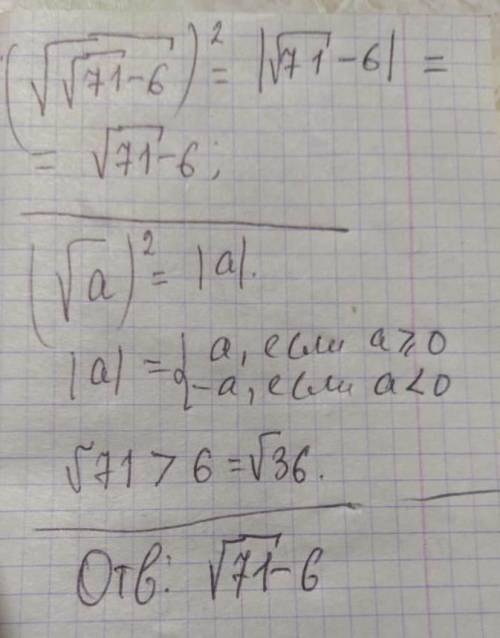 (√(√71-6))² = |√71-6| =
= √71-6;
(√a)² = |a|.
|a| = { a, если a ≥ 0
-a, если a < 0
√71 > 6 = √36.
Отв: √71-6